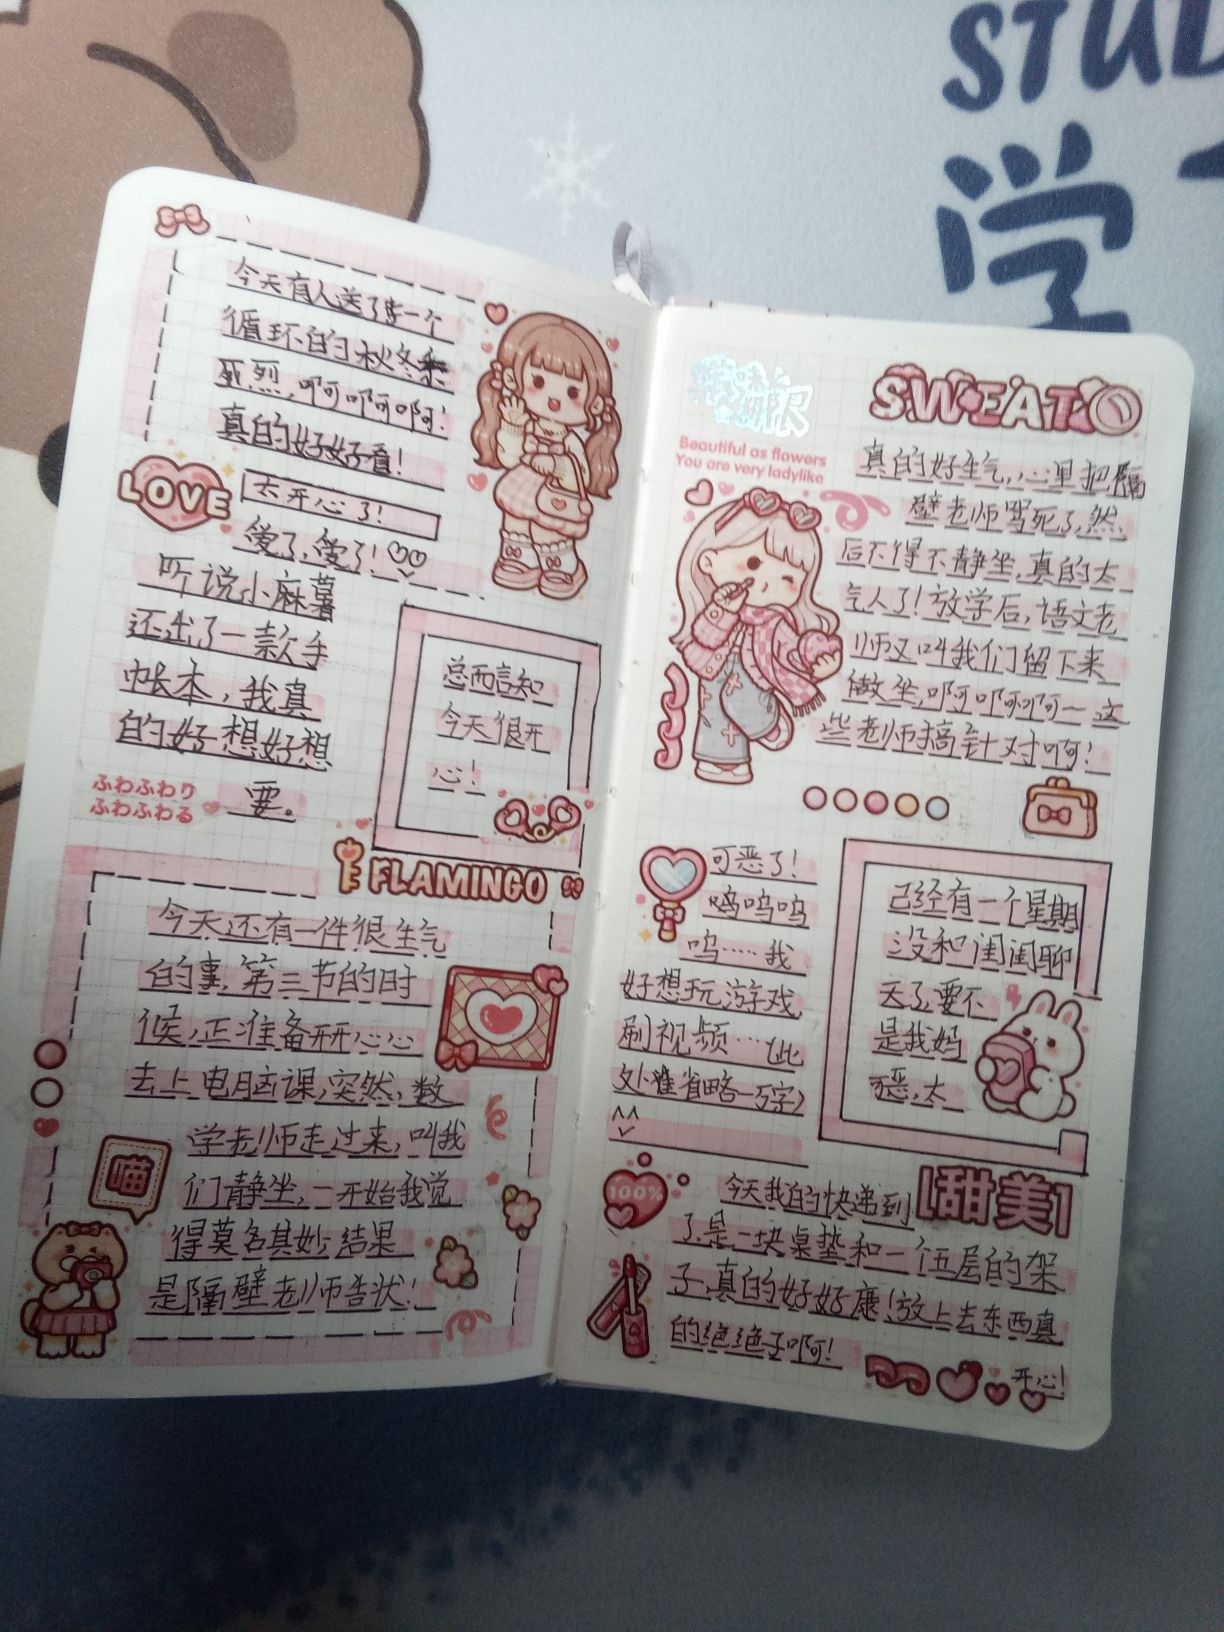 STUD
学
今天有人送了李一个
循环的秋冬
死烈，啊啊啊！
真的好好看！
LOVE
太开心了！
爱了，爱了！
听说小麻薯
还出了一款手
帐本，我真
的好想好想
要。
ふわふわり
ふわふわる
总而言知
今天很开
心！
FLAMINGO
今天还有一件很生气
的事，第三节的时
候，正准备开开心心
去上电脑课，突然，数
学老师走过来，叫我
们静坐，一开始我觉
得莫名其妙，结果
是隔壁老师告状！
喵
SWEAT
Beautiful as flowers
You are very ladylike
真的好生气，心里把隔
壁老师骂死了，然
后不得不静坐，真的太
气人了！放学后，语文老
师又叫我们留下来
做坐，啊啊啊啊一这
些老师搞针对啊！
可恶了！
呜呜呜
呜……我
好想玩游戏，
刷视频…（此
处准省略一万字）
已经有一个星期
没和闺闺聊
天了，要不
是我妈
可恶，太
100%
甜美
今天我的快递到
了，是一块桌垫和一个五层的架
子，真的好好康！放上去东西真
的绝绝子啊！
开心！